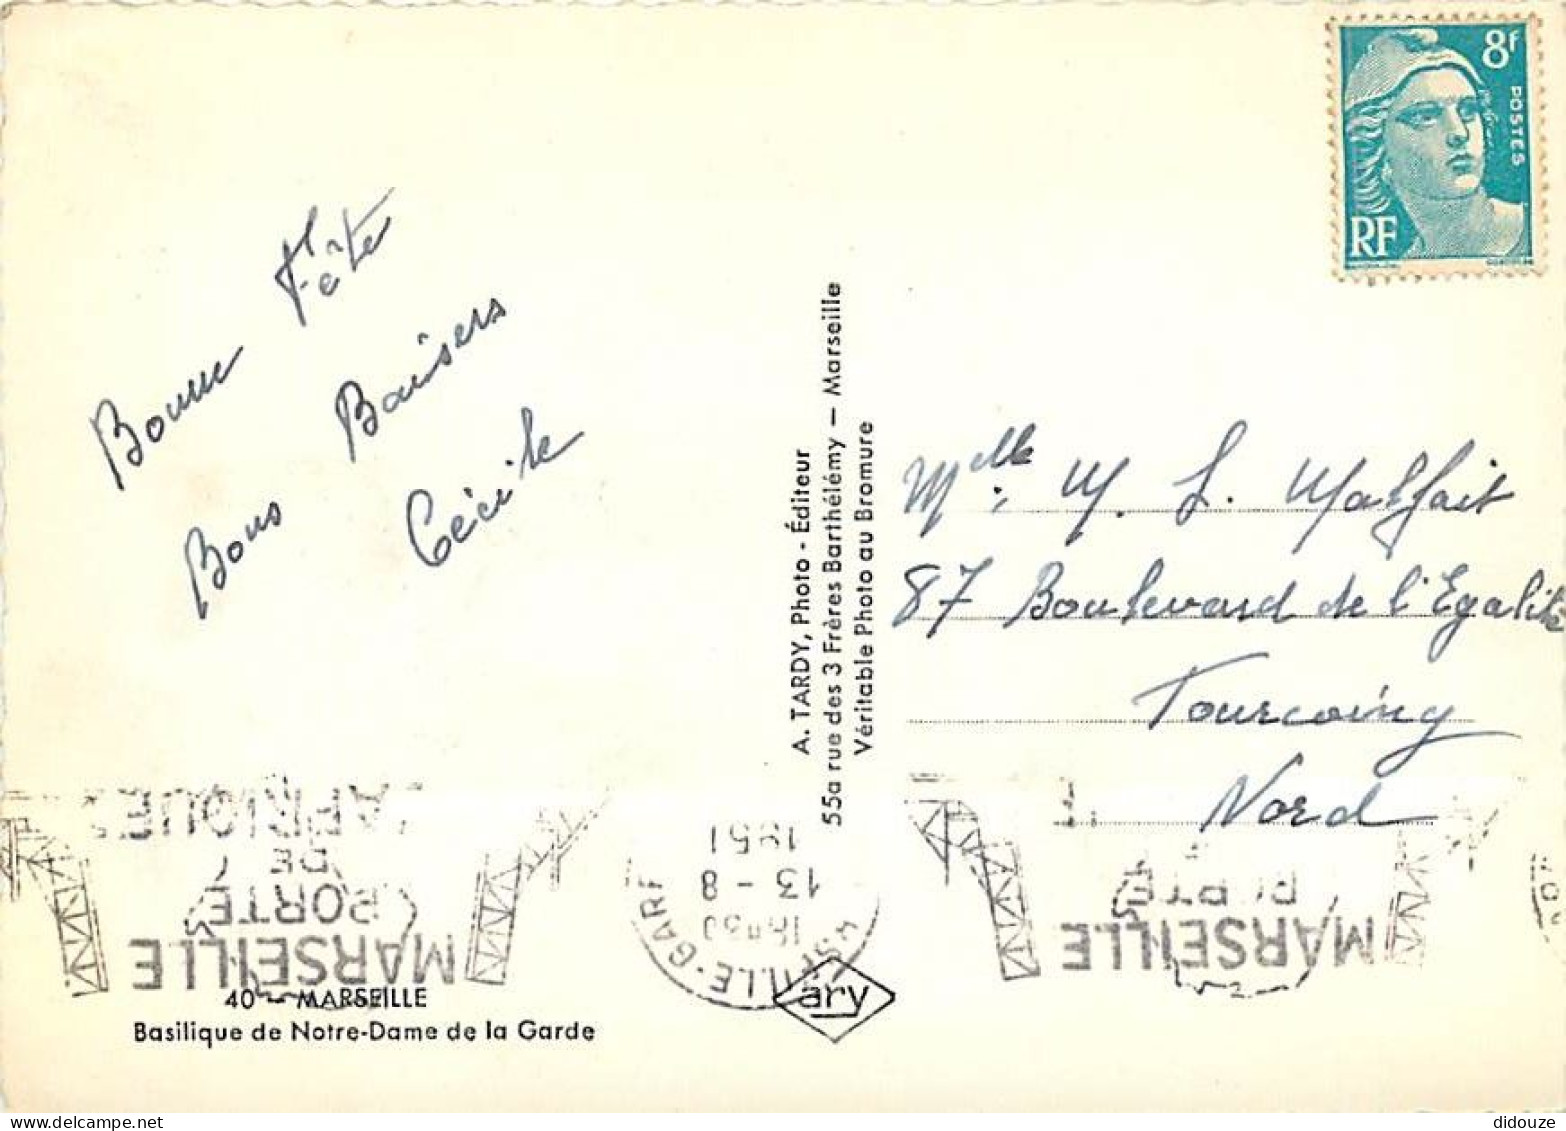 8f
POSTES
RF
Bonne Fête
Bons Baisers
Cécile
A. TARDY, Photo - Éditeur
55a rue des 3 Frères Barthélémy — Marseille
Véritable Photo au Bromure
Melle M. L. Malfait
87 Boulevard de l'Egalité
Tourcoing
Nord
MARSEILLE
PORTE
DE
L'AFRIQUE
MARSEILLE-GARE
18H30
13-8
1951
MARSEILLE
PORTE
40 — MARSEILLE
Basilique de Notre-Dame de la Garde
ary
didouze